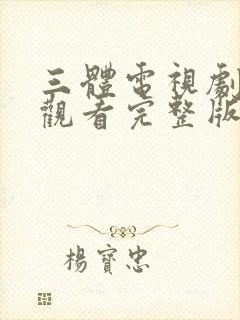 三體電視劇
觀看完整版
楊寶忠